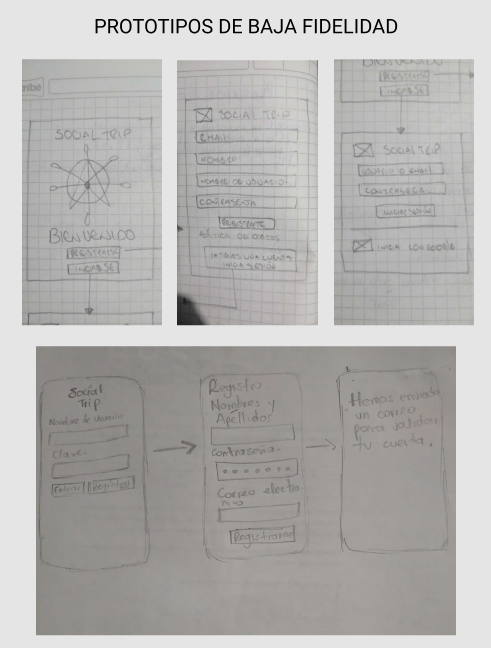 PROTOTIPOS DE BAJA FIDELIDAD
SOCIAL TRIP
BIENVENIDO
REGISTRARSE
INGRESE
SOCIAL TRIP
EMAIL
NOMBRE
NOMBRE DE USUARIO
CONTRASEÑA
REGISTRATE
DATOS
UNA CUENTA
INICIA SESIÓN
BIENVENIDO
REGISTRARSE
INGRESE
SOCIAL TRIP
USUARIO O EMAIL
CONTRASEÑA
INICIAR SESIÓN
INICIA CON GOOGLE
Social
Trip
Nombre de usuario
Clave:
Entrar Registrar
Registro
Nombres y
Apellidos
Contraseña.
Correo electro-
nico
Registrarme
Hemos enviado
un correo
para validar
tu cuenta.